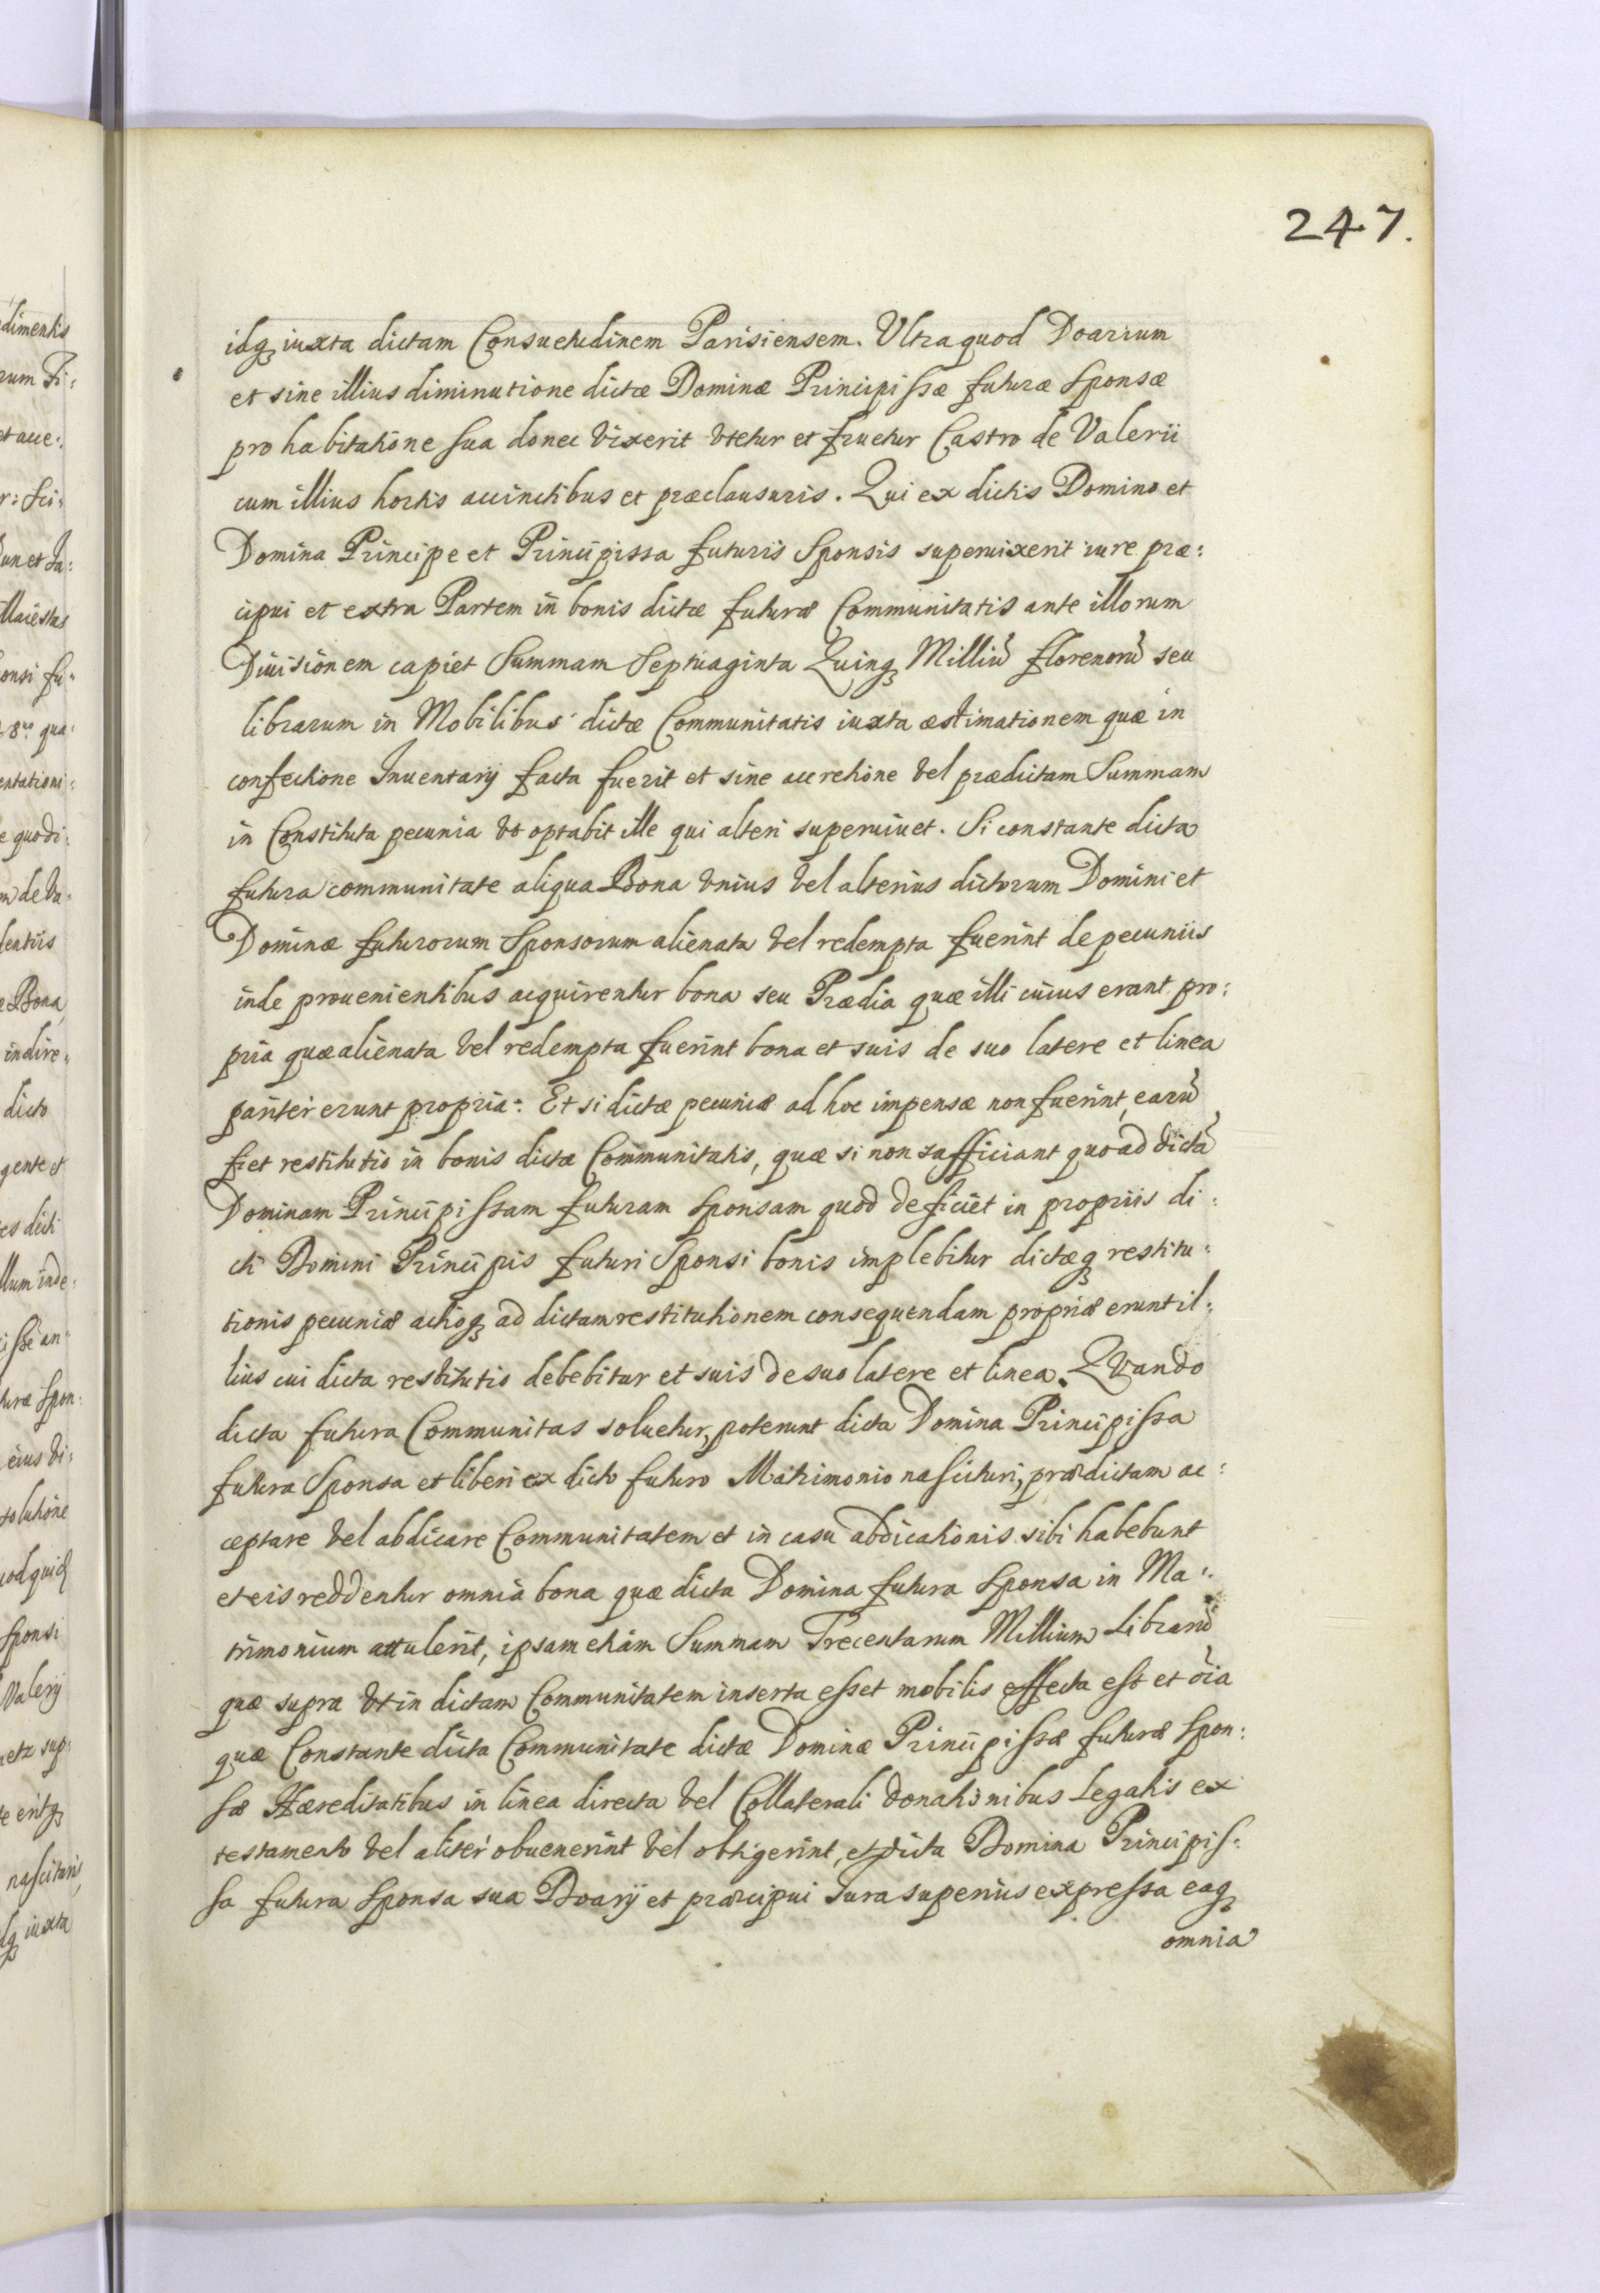 247.
idq; iuxta dictam Consuetudinem Parisiensem. Vltra quod Doarium
et sine illius diminutione dictæ Dominæ Principissæ futuræ Sponsæ
pro habitatione sua donec vixerit vtetur et fruetur Castro de Valerii
cum illius hortis accinctibus et præclausuris. Qui ex dictis Domino et
Domina Principe et Principissa futuris Sponsis superuixerit iure præ:
cipui et extra Partem in bonis dictæ futuræ Communitatis ante illorum
Diuisionem capiet Summam Septuaginta Quinq; Milliũ florenorũ seu
librarum in Mobilibus dictæ Communitatis iuxta æstimationem quæ in
confectione Inuentarij facta fuerit et sine accretione vel prædictam Summam
in Constituta pecunia vt optabit ille qui alteri superuiuet. Si constante dicta
futura communitate aliqua Bona vnius vel alterius dictorum Domini et
Dominæ futurorum Sponsorum alienata vel redempta fuerint de pecuniis
inde prouenientibus acquirentur bona seu Prædia quæ illi cuius erant pro:
pria quæ alienata vel redempta fuerint bona et suis de suo latere et linea
pariter erunt propria: Et si dictæ pecuniæ ad hoc impensæ non fuerint, earũ
fiet restitutio in bonis dictæ Communitatis, quæ si non sufficiant quoad dictã
Dominam Principissam futuram Sponsam quod deficiet in propriis di:
cti Domini Principis futuri Sponsi bonis implebitur dictæq; restitu:
tionis pecuniæ actioq; ad dictam restitutionem consequendam propriæ erunt il:
lius cui dicta restitutio debebitur et suis de suo latere et linea. Quando
dicta futura Communitas soluetur, poterunt dicta Domina Principissa
futura Sponsa et liberi ex dicto futuro Matrimonio nascituri, prædictam ac:
ceptare vel abdicare Communitatem et in casu abdicationis sibi habebunt
et eis reddentur omnia bona quæ dicta Domina futura Sponsa in Ma:
trimonium attulerit, ipsam etiam Summam Trecentarum Millium Librarũ
quæ supra vt in dictam Communitatem inserta esset mobilis effecta est et oĩa
quæ Constante dicta Communitate dictæ Dominæ Principissæ futuræ Spon:
sæ Hæreditatibus in linea directa vel Collaterali donationibus Legatis ex
testamento vel aliter obuenerint vel obtigerint, et dicta Domina Principis:
sa futura Sponsa sua Doarij et præcipui Iura superius expressa eaq;
omnia